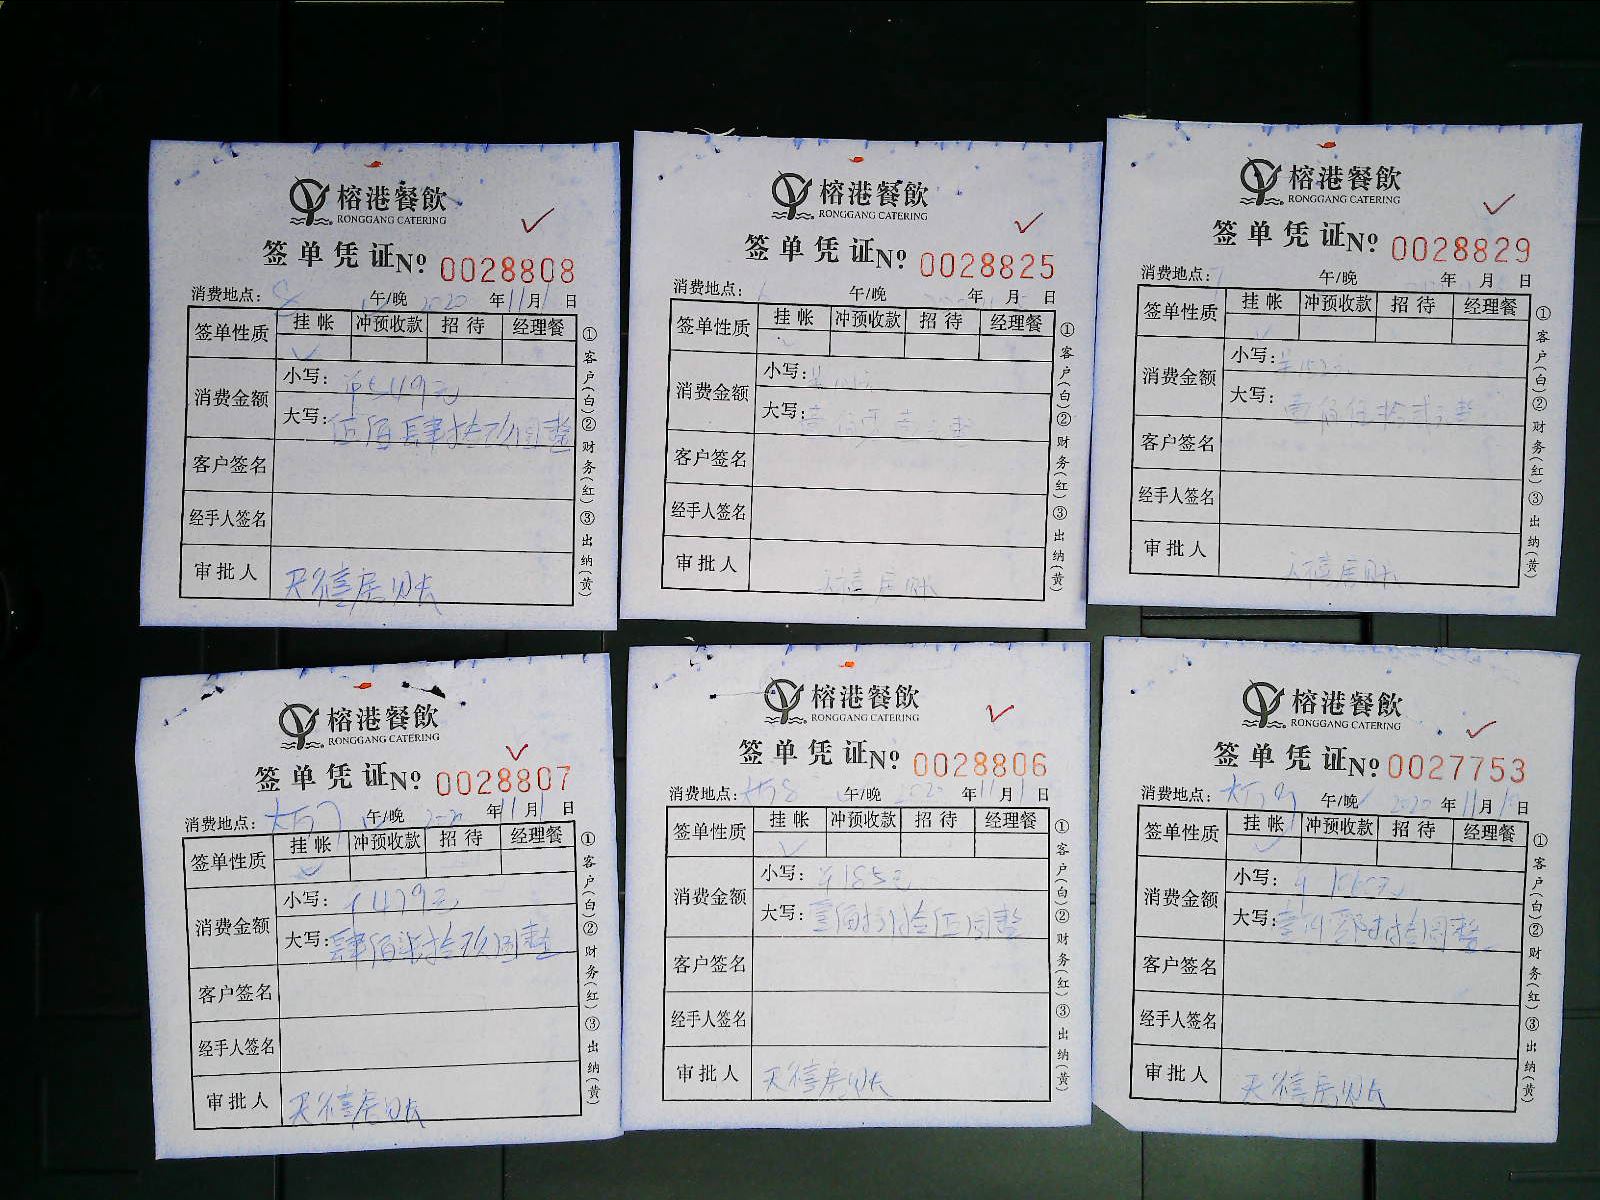 榕港餐飲
RONGGANG CATERING
签单凭证№ 0028808
消费地点：8 午/晚 2020年11月1日
签单性质 挂帐 冲预收款 招待 经理餐
消费金额
小写：549元
大写：伍佰肆拾玖圆整
客户签名
经手人签名
审批人
①客户(白)②财务(红)③出纳(黄)
榕港餐飲
RONGGANG CATERING
签单凭证№ 0028825
消费地点： 午/晚 年 月 日
签单性质 挂帐 冲预收款 招待 经理餐
消费金额
小写：
大写：
客户签名
经手人签名
审批人
①客户(白)②财务(红)③出纳(黄)
榕港餐飲
RONGGANG CATERING
签单凭证№ 0028829
消费地点： 午/晚 年 月 日
签单性质 挂帐 冲预收款 招待 经理餐
消费金额
小写：152
大写：壹佰伍拾贰元整
客户签名
经手人签名
审批人
①客户(白)②财务(红)③出纳(黄)
榕港餐飲
RONGGANG CATERING
签单凭证№ 0028807
消费地点： 午/晚 2020年11月1日
签单性质 挂帐 冲预收款 招待 经理餐
消费金额
小写：479元
大写：肆佰柒拾玖圆整
客户签名
经手人签名
审批人
①客户(白)②财务(红)③出纳(黄)
榕港餐飲
RONGGANG CATERING
签单凭证№ 0028806
消费地点： 午/晚 2020年11月1日
签单性质 挂帐 冲预收款 招待 经理餐
消费金额
小写：185元
大写：壹佰捌拾伍圆整
客户签名
经手人签名
审批人
①客户(白)②财务(红)③出纳(黄)
榕港餐飲
RONGGANG CATERING
签单凭证№ 0027753
消费地点： 午/晚 2020年11月1日
签单性质 挂帐 冲预收款 招待 经理餐
消费金额
小写：
大写：
客户签名
经手人签名
审批人
①客户(白)②财务(红)③出纳(黄)